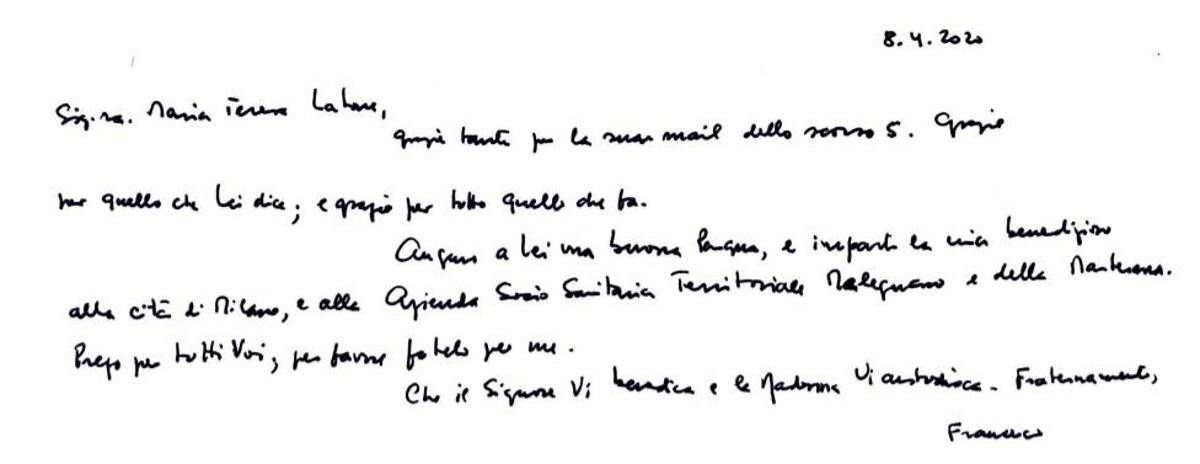 8.4.2020
Sig.ra. Maria Teresa
grazie tante per la sua mail dello scorso 5. Grazie
per quello che Lei dice; e grazie per tutto quello che fa.
Auguro a Lei una buona Pasqua, e imparto la mia benedizione
alla città di Milano, e alla Azienda Socio Sanitaria Territoriale Melegnano e della Martesana.
Prego per tutti Voi; per favore fatelo per me.
Che il Signore Vi benedica e la Madonna Vi custodisca. Fraternamente,
Francesco